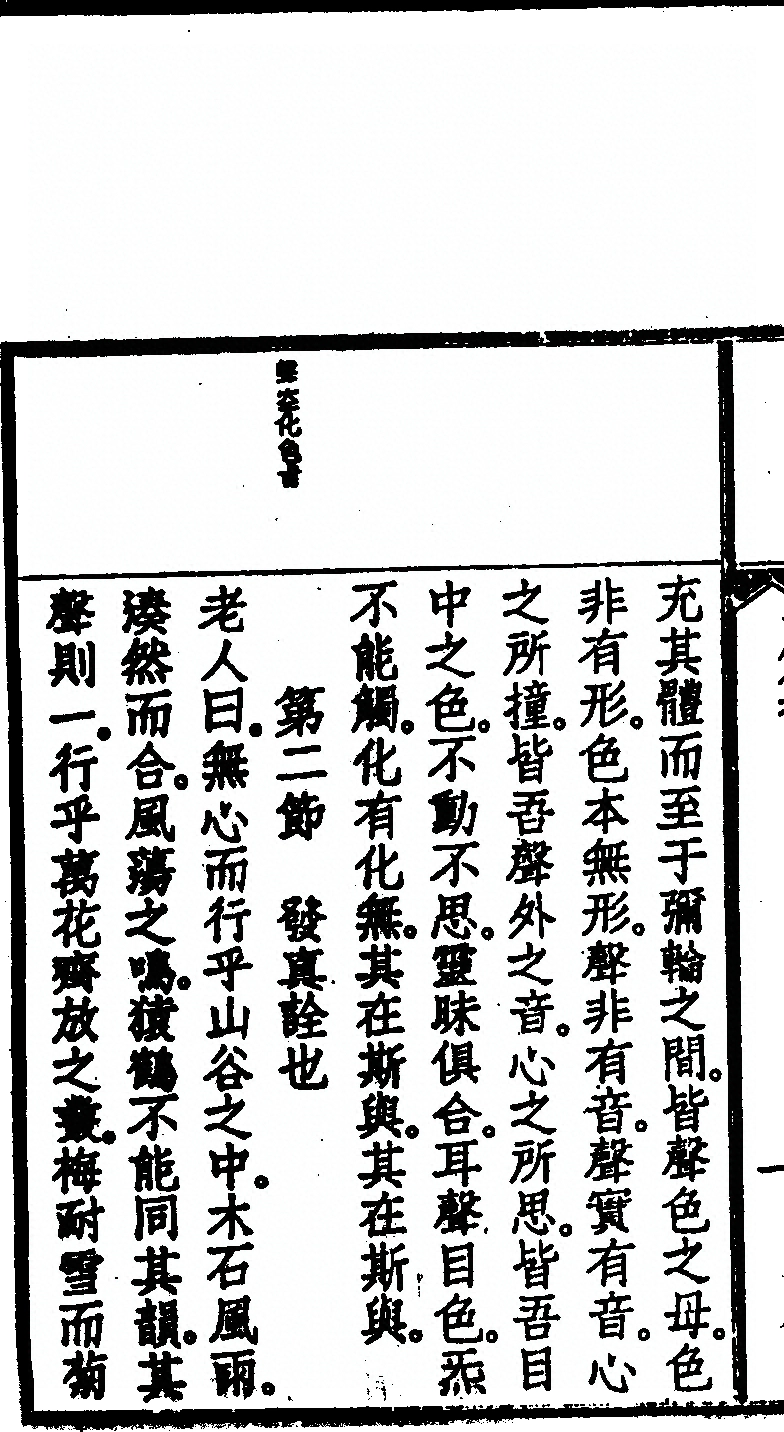 充其體而至于彌輪之間。皆聲色之母。色
非有形。色本無形。聲非有音。聲實有音。心
之所撞。皆吾聲外之音。心之所思。皆吾目
中之色。不動不思。靈昧俱合。耳聲目色。炁
不能觸。化有化無。其在斯與。其在斯與。
第二節　發真詮也
老人曰。無心而行乎山谷之中。木石風雨。
湊然而合。風蕩之鳴。猿鶴不能同其韻。其
聲則一。行乎萬花齊放之叢。梅耐雪而菊